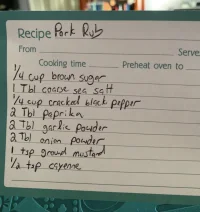 Recipe Pork Rub
From
Serve
Cooking time
Preheat oven to
1/4 cup brown sugar
1 Tbl coarse sea salt
1/4 cup cracked black pepper
2 Tbl paprika
2 Tbl garlic powder
2 Tbl onion powder
1 tsp ground mustard
1/2 tsp cayenne